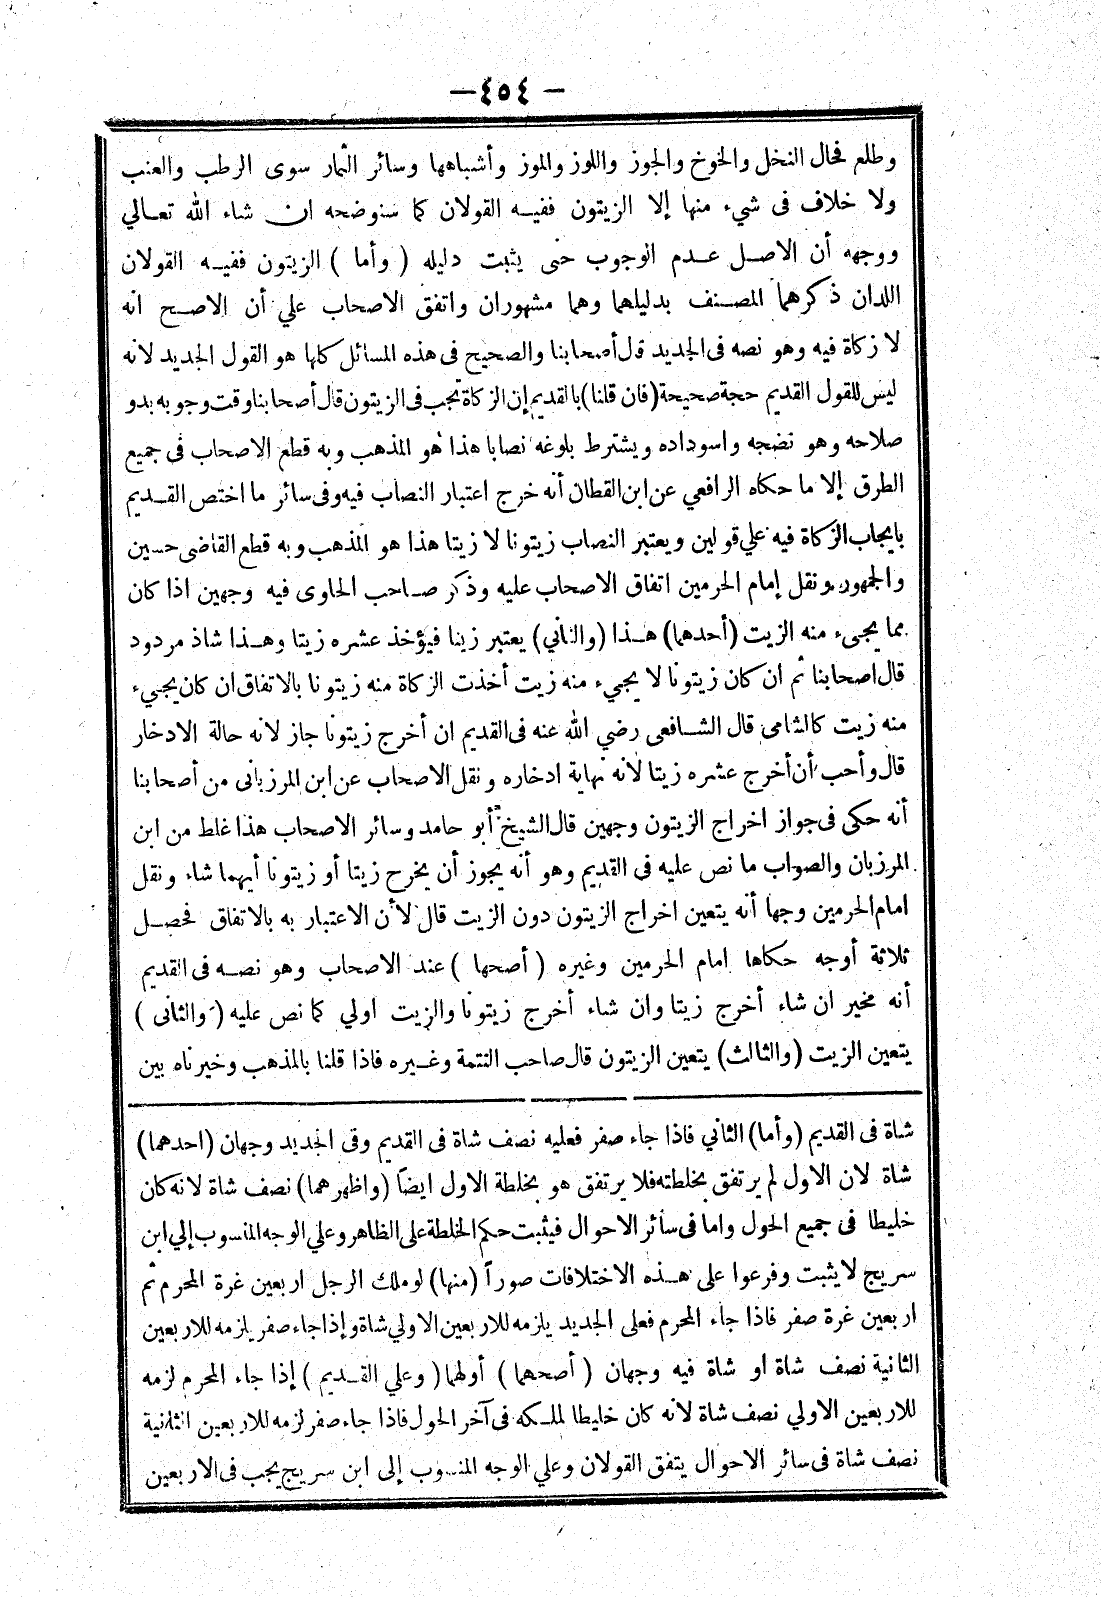 — ٤٥٤ —
وطلع فحال النخل والخوخ والجوز واللوز والموز وأشباهها وسائر الثمار سوى الرطب والعنب
ولا خلاف فى شيء منها إلا الزيتون ففيه القولان كما سنوضحه ان شاء الله تعالي
ووجهه أن الاصل عدم الوجوب حتى يثبت دليله ( وأما ) الزيتون ففيه القولان
اللدان ذكرهما المصنف بدليلهما وهما مشهوران واتفق الاصحاب علي أن الاصح انه
لا زكاة فيه وهو نصه فى الجديد قال أصحابنا والصحيح فى هذه المسائل كلها هو القول الجديد لانه
ليس للقول القديم حجة صحيحة (فان قلنا) بالقديم إن الزكاة تجب فى الزيتون قال أصحابنا وقت وجوبه بدو
صلاحه وهو نضجه واسوداده ويشترط بلوغه نصابا هذا هو المذهب وبه قطع الاصحاب فى جميع
الطرق إلا ما حكاه الرافعي عن ابن القطان أنه خرج اعتبار النصاب فيه وفى سائر ما اختص القديم
بايجاب الزكاة فيه علي قولين ويعتبر النصاب زيتونا لا زيتا هذا هو المذهب وبه قطع القاضى حسين
والجمهور ونقل إمام الحرمين اتفاق الاصحاب عليه وذكر صاحب الحاوى فيه وجهين اذا كان
مما يجىء منه الزيت (أحدهما) هذا (والثاني) يعتبر زيتا فيؤخذ عشره زيتا وهذا شاذ مردود
قال اصحابنا ثم ان كان زيتونا لا يجيء منه زيت أخذت الزكاة منه زيتونا بالاتفاق ان كان يجيء
منه زيت كالشامى قال الشافعى رضي الله عنه فى القديم ان أخرج زيتونا جاز لانه حالة الادخار
قال وأحب أن أخرج عشره زيتا لانه نهاية ادخاره ونقل الاصحاب عن ابن المرزبانى من أصحابنا
أنه حكى فى جواز اخراج الزيتون وجهين قال الشيخ أبو حامد وسائر الاصحاب هذا غلط من ابن
المرزبان والصواب ما نص عليه فى القديم وهو أنه يجوز أن يخرج زيتا أو زيتونا أيهما شاء ونقل
امام الحرمين وجها أنه يتعين اخراج الزيتون دون الزيت قال لأن الاعتبار به بالاتفاق فحصل
ثلاثة أوجه حكاها امام الحرمين وغيره ( أصحها ) عند الاصحاب وهو نصه فى القديم
أنه مخير ان شاء أخرج زيتا وان شاء أخرج زيتونا والزيت اولي كما نص عليه ( والثانى )
يتعين الزيت (والثالث) يتعين الزيتون قال صاحب التتمة وغيره فاذا قلنا بالمذهب وخيرناه بين
شاة فى القديم (وأما) الثاني فاذا جاء صفر فعليه نصف شاة فى القديم وفى الجديد وجهان (احدهما)
شاة لان الاول لم يرتفق بخلطته فلا يرتفق هو بخلطة الاول ايضاً (واظهرهما) نصف شاة لانه كان
خليطا فى جميع الحول واما فى سائر الاحوال فيثبت حكم الخلطة على الظاهر وعلي الوجه المنسوب إلي ابن
سريج لا يثبت وفرعوا على هذه الاختلافات صوراً (منها) لو ملك الرجل اربعين غرة المحرم ثم
اربعين غرة صفر فاذا جاء المحرم فعلى الجديد يلزمه للاربعين الاولي شاة وإذا جاء صفر يلزمه للاربعين
الثانية نصف شاة او شاة فيه وجهان ( أصحهما ) أولهما ( وعلي القديم ) إذا جاء المحرم لزمه
للاربعين الاولي نصف شاة لانه كان خليطا لملكه فى آخر الحول فاذا جاء صفر لزمه للاربعين الثانية
نصف شاة فى سائر الاحوال يتفق القولان وعلي الوجه المنسوب إلى ابن سريج يجب فى الاربعين